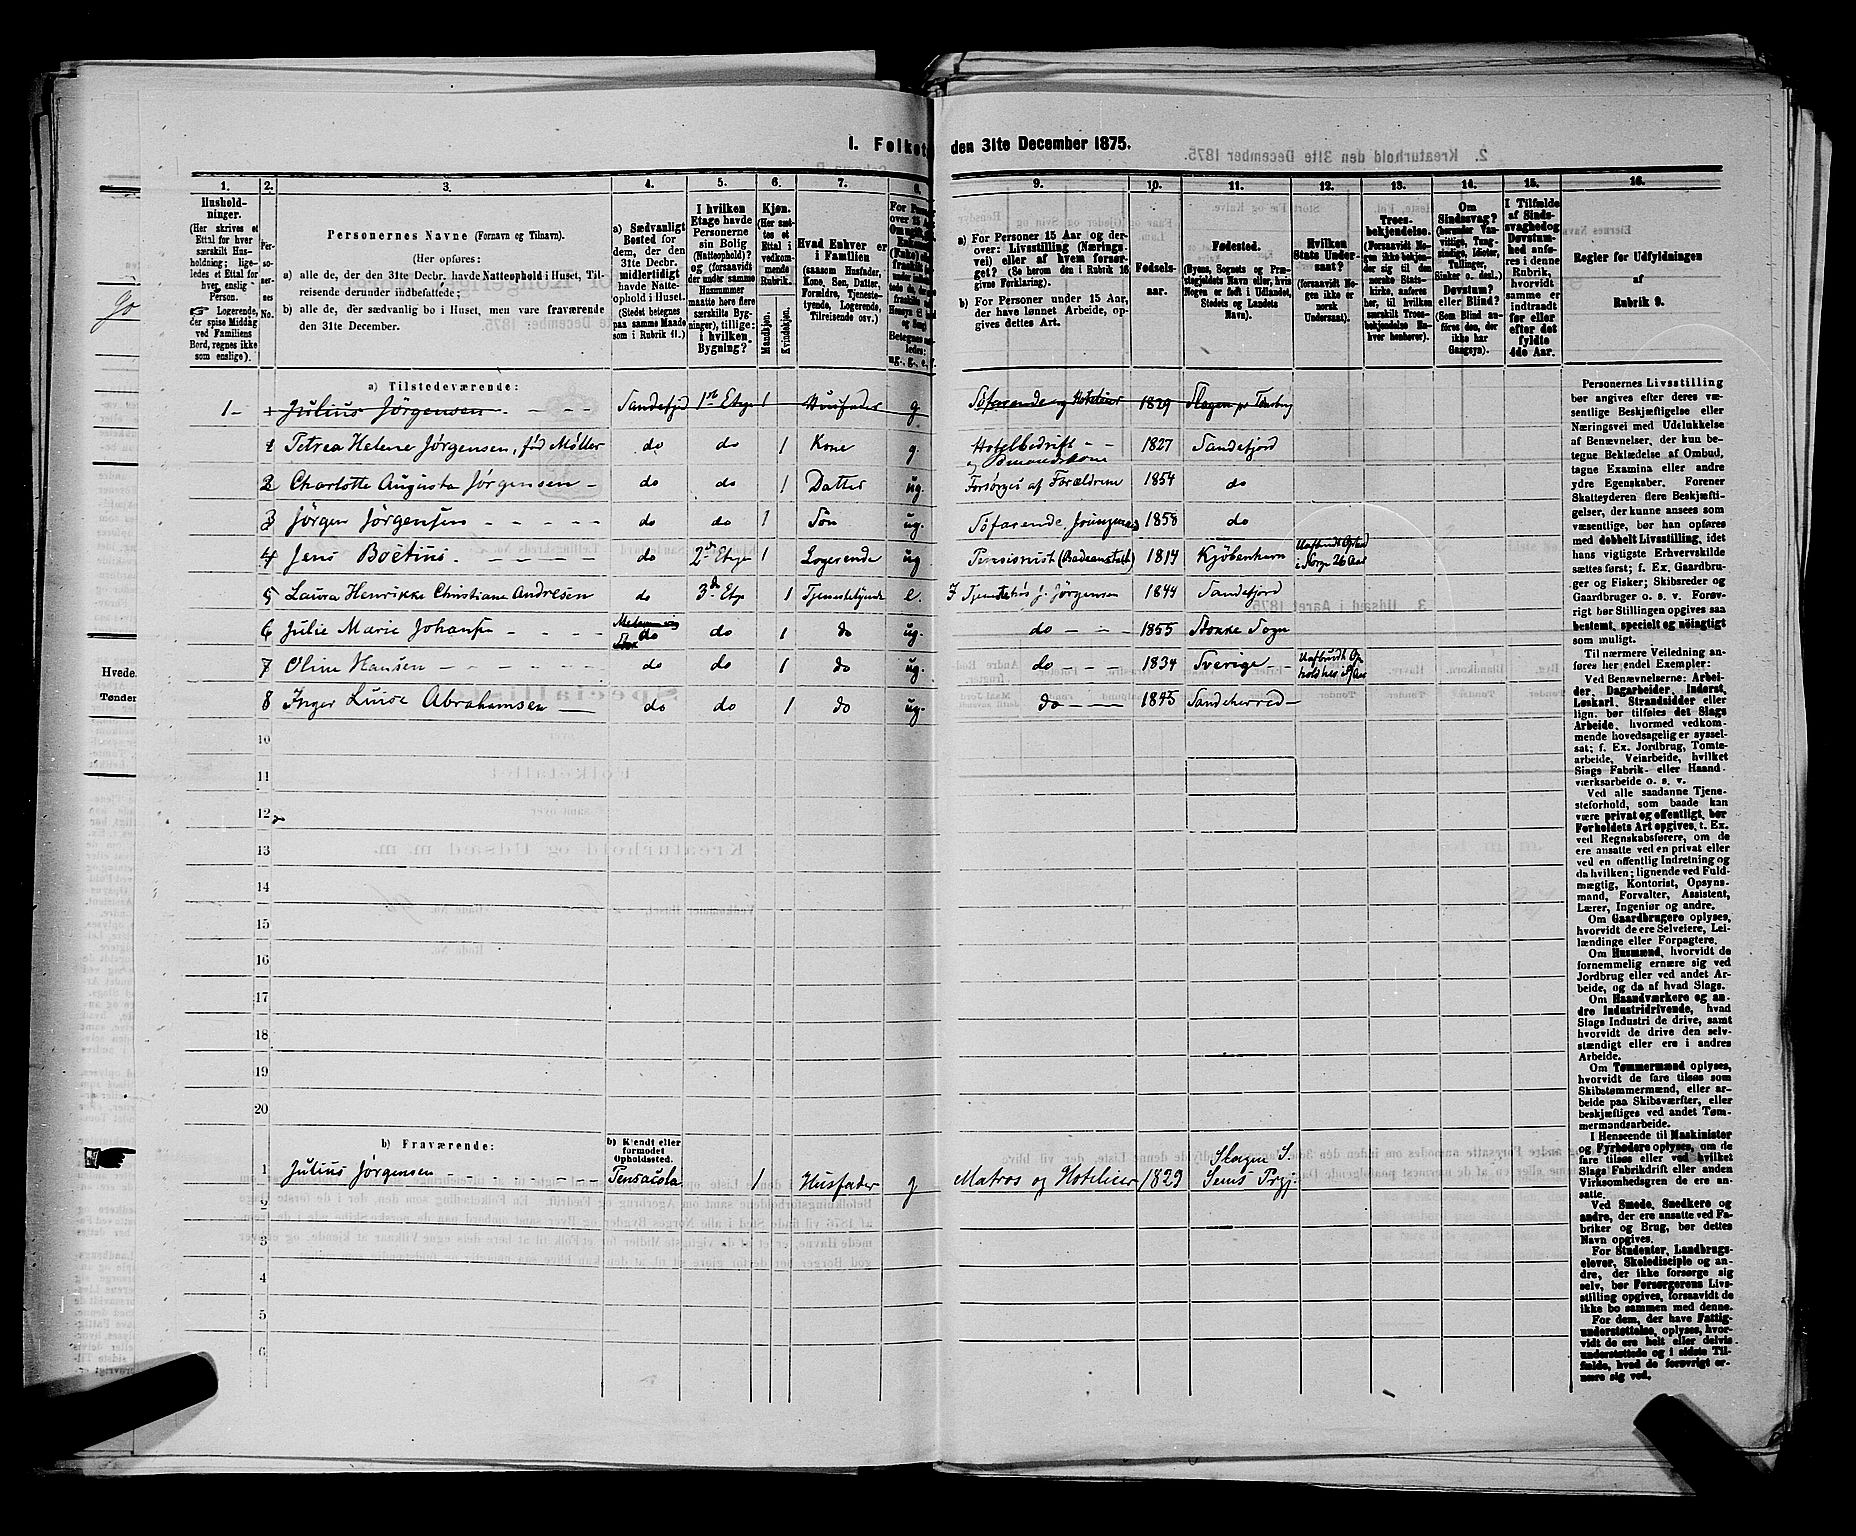 1. Folketæ
den 31te December 1875.
1. 2. 3. 4. 5. 6. 7. 8. 9. 10. 11. 12. 13. 14. 15. 16.
Husholdninger.
(Her skrives et
Ettal for hver
særskilt Husholdning; ligeledes
et Ettal for
hver enslig
Person.
Logerende,
der spise Middag
ved Familiens
Bord, regnes ikke
som enslige).
Personernes No.
Personernes Navne (Fornavn og Tilnavn).
(Her opføres:
a) alle de, der den 31te Decbr. havde Natteophold i Huset, Tilreisende
derunder indbefattede;
b) alle de, der sædvanlig bo i Huset, men vare fraværende
den 31te December.
a) Sædvanligt
Bosted for
dem, der den
31te Decbr.
midlertidigt
havde Natteophold
i Huset.
(Stedet betegnes
paa samme Maade
som i Rubrik 11.)
I hvilken
Etage havde
Personerne
sin Bolig
(Natteophold)?
og (forsaavidt
der under samme
Husnummer
maatte høre flere
særskilte Bygninger),
tillige:
i hvilken
Bygning?
Kjøn.
(Her sættes
et
Ettal i
vedkommende
Rubrik.
Mandkjøn.
Kvindekjøn.
Hvad Enhver er
i Familien
(saasom Husfader,
Kone, Søn, Datter,
Forældre, Tjenestetyende,
Logerende,
Tilreisende osv.)
a) For Personer 15 Aar og derover:
Livsstilling (Næringsvei)
eller af hvem forsørget?
(Se herom den i Rubrik 16
givne Forklaring).
b) For Personer under 15 Aar,
der have lønnet Arbeide, opgives
dettes Art.
Fødselsaar.
Fødested.
(Byens, Sognets og Præstegjeldets
Navn eller, hvis
Nogen er født i Udlandet,
Stedets og Landets
Navn).
Hvilken
Stats Undersaat?
(forsaavidt Nogen
ikke er
norsk
Undersaat).
Troesbekjendelse.
(Forsaavidt Nogen
ikke bekjender
sig til den
norske Statskirke,
anføres
her, til hvilken
særskilt Troesbekjendelse
Enhver
henhører).
Om
Sindssvag?
(herunder Vanvittige,
Tungsindige,
Idioter,
Tullinger,
Sinker o. desl.)
Døvstum?
eller Blind?
(Som Blind anføres
den, der
ikke har
Gangsyn).
I Tilfælde
af Sindssvaghed
og
Døvstumhed
anføres
i denne
Rubrik,
hvorvidt
samme er
indtraadt
før eller
efter det
fyldte
4de Aar.
Regler for Udfyldningen
af
Rubrik 9.
a) Tilstedeværende:
1 - 1 Julius Jørgensen - - - Sandefjord 1ste Etage 1 Husfader g Søfarende og Hotelier 1829 Slagen pr Tønsberg
1 Petrea Helene Jørgensen, fød Møller do do 1 Kone g. Hotelbedrift - - 1827 Sandefjord
2 Charlotte Augusta Jørgensen - do do 1 Datter ug. Forsørges af Forældrene 1854 do
3 Jørgen Jørgensen - - - - - do do 1 Søn ug. Søfarende, Jungmand 1858 do
4 Jens Boëtius - - - - - do 2den Etage 1 Logerende ug Pensionist (Badeanstalt) 1814 Kjøbenhavn
5 Laura Henrikke Christiane Andresen do 3die Etage 1 Tjenestetyende e. 1844 Sandefjord
6 Julie Marie Johansen - - - - do do 1 do ug. do - - - 1855 Stokke Sogn
7 Oline Hansen - - - - - do do 1 do ug. do - - - 1834 Sverige -
8 Inger Luise Abrahamsen do do 1 do ug. do - - - 1845 Sandeherred -
10
11
12
13
14
15
16
17
18
19
20
b) Fraværende:
b) Kjendt eller
formodet
Opholdssted.
1 Julius Jørgensen - - - - - Pensacola 1 Husfader g Matros og Hotelier 1829 Slagen S. Sems Prgj.
2
3
4
5
6
Personernes Livsstilling
bør angives efter deres væsentlige
Beskjæftigelse eller
Næringsvei med Udelukkelse
af Benævnelser, der kun betegne
Beklædelse af Ombud,
tagne Examina eller andre
ydre Egenskaber. Forener
Skatteyderen flere Beskjæftigelser,
der kunne ansees som
væsentlige, bør han opføres
med dobbelt Livsstilling, idet
hans vigtigste Erhvervskilde
sættes først; f. Ex. Gaardbruger
og Fisker; Skibsreder og
Gaardbruger o. s. v. Forøvrigt
bør Stillingen opgives saa
bestemt, specielt og nøiagtigt
som muligt.
Til nærmere Veiledning anføres
her endel Exempler:
Ved Benævnelserne: Arbeider,
Dagarbeider, Inderst,
Løskarl, Strandsidder eller
lign. bør tilføies det Slags
Arbeide, hvormed vedkommende
hovedsagelig er sysselsat;
f. Ex. Jordbrug, Tomtearbeide,
Veiarbeide, hvilket
Slags Fabrik- eller Haandværksarbeide
o. s. v.
Ved alle saadanne Tjenesteforhold,
som baade kan
være privat og offentligt, bør
Forholdets Art opgives, t. Ex.
ved Regnskabsførere, om de
ere ansatte ved en privat eller
ved en offentlig Indretning og
da hvilken; lignende ved Fuldmægtig,
Kontorist, Opsynsmand,
Forvalter, Assistent,
Lærer, Ingeniør og andre.
Om Gaardbrugere oplyses,
hvorvidt de ere Selveiere, Leilændinge
eller Forpagtere.
Om Husmænd, hvorvidt de
fornemmelig ernære sig ved
Jordbrug eller ved andet Arbeide,
og da af hvad Slags.
Om Haandværkere og andre
Industridrivende, hvad
Slags Industri de drive, samt
hvorvidt de drive den selvstændigt
eller ere i andres
Arbeide.
Om Tømmermænd oplyses,
hvorvidt de fare tilsøs som
Skibstømmermænd, eller arbeide
paa Skibsværfter, eller
beskjæftiges ved andet Tømmermandsarbeide.
I Henseende til Maskinister
og Fyrbødere oplyses, om de
fare tilsøs eller ved hvilket
Slags Fabrikdrift eller anden
Virksomhedsgren de ere ansatte.
Ved Smede, Snedkere og
andre, der ere ansatte ved Fabriker
og Brug, bør dettes
Navn opgives.
For Studenter, Landbrugselever,
Skoledisciple og andre,
der ikke forsørge sig
selv, bør Forsørgerens Livsstilling
opgives, forsaavidt de
ikke bo sammen med denne.
For dem, der have Fattigunderstøttelse,
oplyses, hvorvidt
de ere helt eller delvis
understøttede og i sidste Tilfælde,
hvad de forøvrigt ernære
sig ved.
Hvede.
Tønder